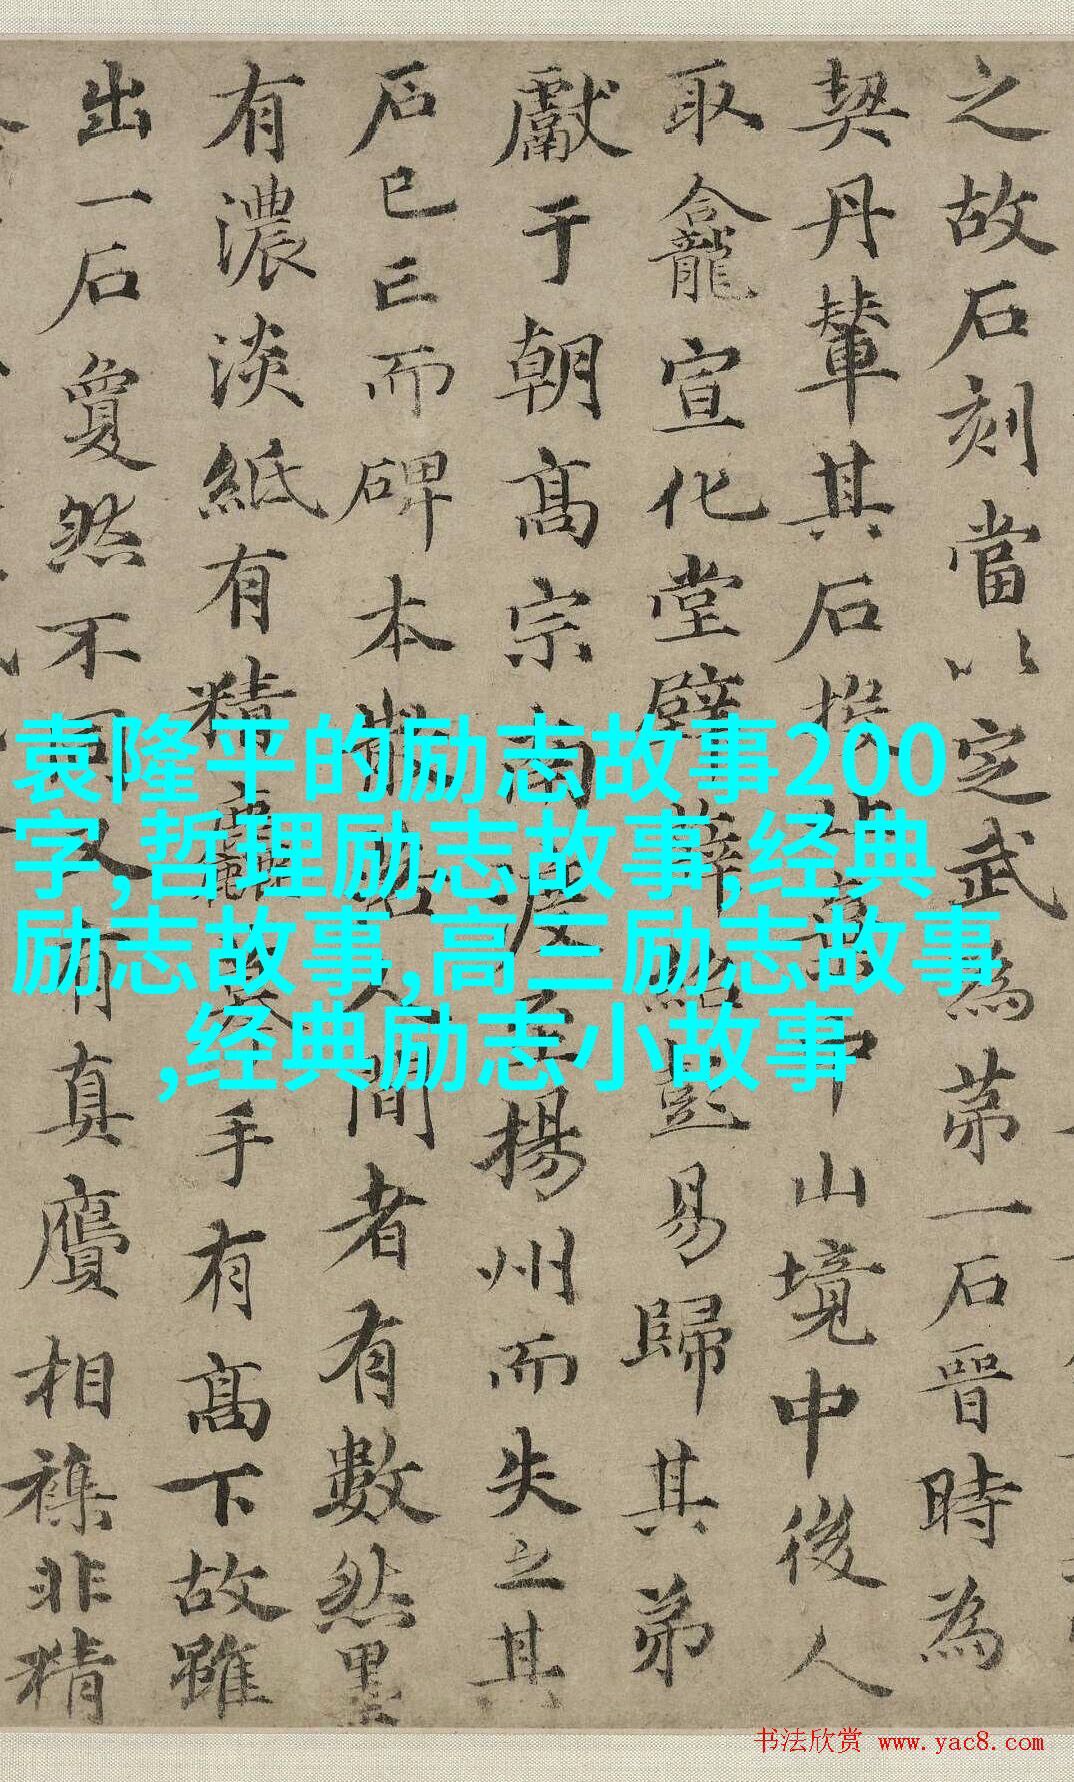 之故石刻當以定武為苐一石晉時為
契丹輦其石投棄中山境中後人
取龕宣化堂壁薛紹彭易歸其弟
獻于朝高宗南渡至揚州而失之其
石已亡而碑本散落人間者有數然墨
有濃淡紙有精麤摹手有高下故雖
出一石夐然不同又有真贗相襍非精
袁隆平的励志故事200
字,哲理励志故事,经典
励志故事,高三励志故事
,经典励志小故事
书法欣赏 www.yac8.com